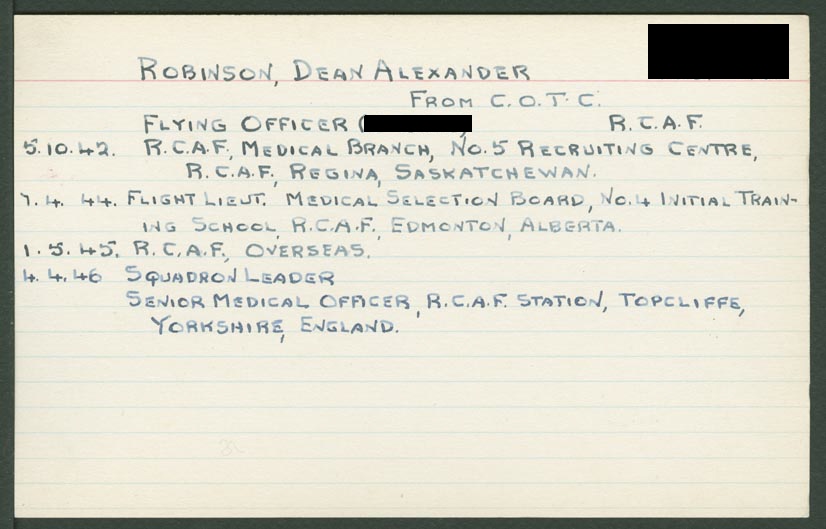 ROBINSON, DEAN ALEXANDER
FROM C.O.T.C.
FLYING OFFICER ( R.C.A.F.
5.10.42. R.C.A.F., MEDICAL BRANCH, NO.5 RECRUITING CENTRE,
R.C.A.F., REGINA, SASKATCHEWAN.
7.4.44. FLIGHT LIEUT. MEDICAL SELECTION BOARD, NO.4 INITIAL TRAIN-
ING SCHOOL, R.C.A.F., EDMONTON, ALBERTA.
1.5.45. R.C.A.F., OVERSEAS.
4.4.46 SQUADRON LEADER
SENIOR MEDICAL OFFICER, R.C.A.F. STATION, TOPCLIFFE,
YORKSHIRE, ENGLAND.